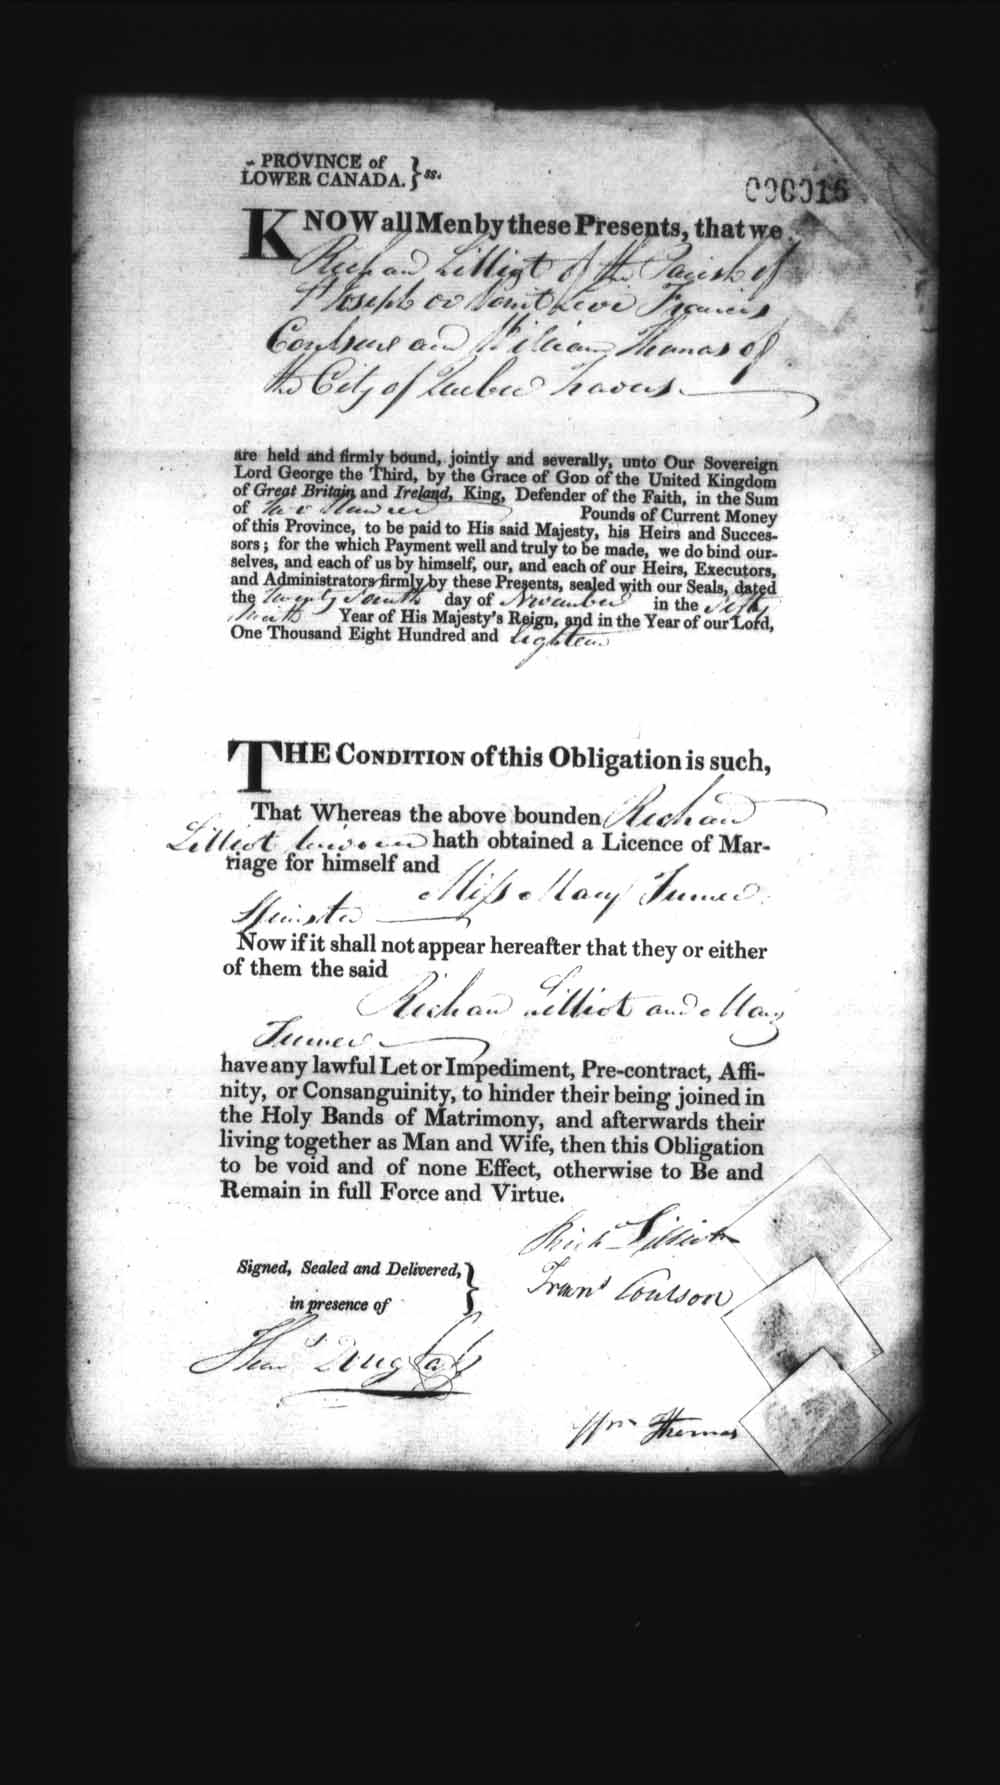 PROVINCE of
LOWER CANADA. } ss.
000016
KNOW all Men by these Presents, that we
Richard Lilliot of the Parish of
St Joseph or Point Levi Francis
Coulson and William Thomas of
the City of Quebec
are held and firmly bound, jointly and severally, unto Our Sovereign
Lord George the Third, by the Grace of GOD of the United Kingdom
of Great Britain and Ireland, King, Defender of the Faith, in the Sum
of Two Hundred Pounds of Current Money
of this Province, to be paid to His said Majesty, his Heirs and Succes-
sors; for the which Payment well and truly to be made, we do bind our-
selves, and each of us by himself, our, and each of our Heirs, Executors,
and Administrators firmly by these Presents, sealed with our Seals, dated
the Twenty day of November in the Fifty
Ninth Year of His Majesty's Reign, and in the Year of our Lord,
One Thousand Eight Hundred and Eighteen
THE CONDITION of this Obligation is such,
That Whereas the above bounden Richard
Lilliot hath obtained a Licence of Mar-
riage for himself and
Miss Mary Turner
Spinster
Now if it shall not appear hereafter that they or either
of them the said
Richard Lilliot and Mary
Turner
have any lawful Let or Impediment, Pre-contract, Affi-
nity, or Consanguinity, to hinder their being joined in
the Holy Bands of Matrimony, and afterwards their
living together as Man and Wife, then this Obligation
to be void and of none Effect, otherwise to Be and
Remain in full Force and Virtue.
Richd Lilliot
Signed, Sealed and Delivered, }
Frans Coulson
in presence of
Thos Douglass
Wm Thomas